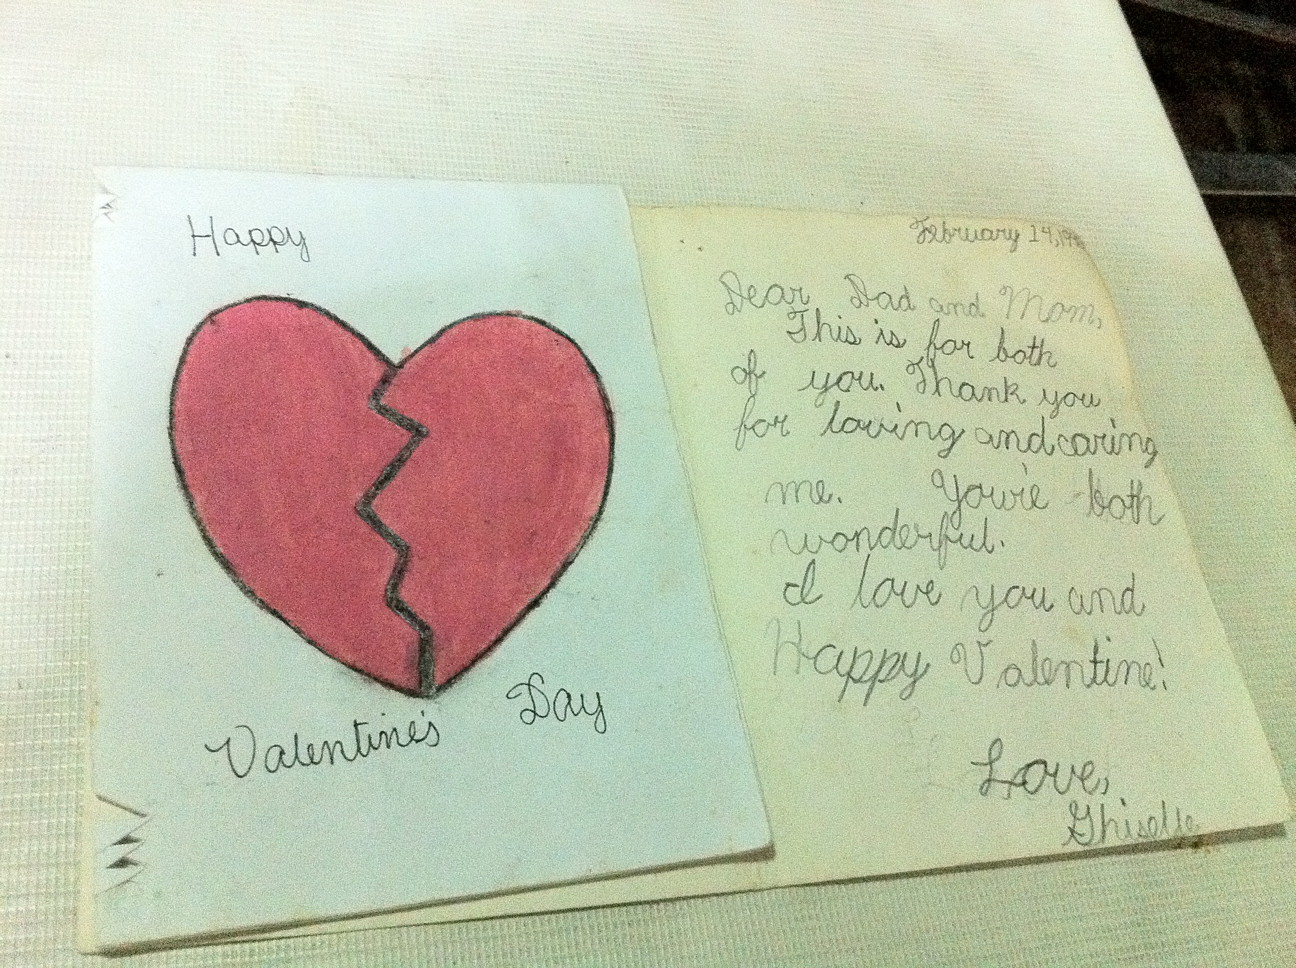 Happy
Valentine's Day
February 14,
Dear Dad and Mom,
This is for both
of you. Thank you
for loving and caring
me. You're both
wonderful.
I love you and
Happy Valentine!
Love,
Ghiselle